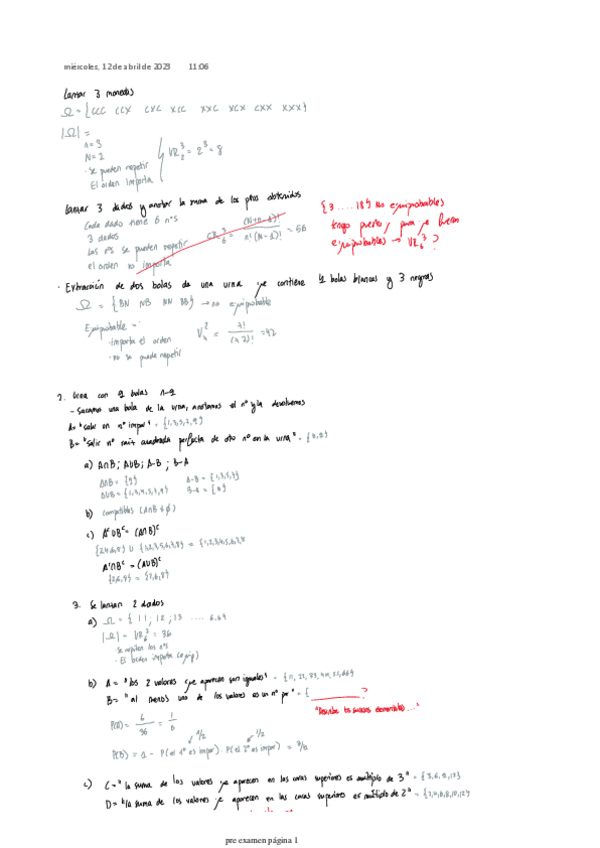 miércoles, 12 de abril de 2023 11:06
Lanzar 3 monedas
Ω = {CCC CCX CXC XCC XXC XCX CXX XXX}
|Ω| =
n = 3
N = 2
· Se pueden repetir
El orden importa
VR₂³ = 2³ = 8
Lanzar 3 dados y anotar la suma de los ptos obtenidos
Cada dado tiene 6 nºs
3 dados
Los nºs se pueden repetir
el orden no importa
CR₆³ = (N+n-1)! / n!(N-1)! = 56
{3 .... 18} No equiprobables
tengo puesto, para que fueran
equiprobables → VR₆³ ?
· Extracción de dos bolas de una urna que contiene 4 bolas blancas y 3 negras
Ω = {BN NB NN BB} → no equiprobable
Equiprobable
· importa el orden
· no se puede repetir
= 42
2. Urna con 9 bolas 1-9
- Sacamos una bola de la urna, anotamos el nº y la devolvemos
A = "salir un nº impar" = {1,3,5,7,9}
B = "salir nº raíz cuadrada perfecta de otro nº en la urna"
a) A∩B ; A∪B ; A-B ; B-A
A∩B = {9}
A-B = {1,3,5,7}
A∪B = {1,3,4,5,7,9}
B-A = {4}
b) compatibles (A∩B ≠ ∅)
c) Aᶜ∪Bᶜ = (A∩B)ᶜ
{2,4,6,8} ∪ {1,2,3,5,6,7,8} = {1,2,3,4,5,6,7,8
Aᶜ∩Bᶜ = (A∪B)ᶜ
{2,6,8} = {2,6,8}
3. Se lanzan 2 dados
a) Ω = { 11 ; 12 ; 13 .... 6.6}
= 36
· Se repiten los nºs
· El orden importa (equip)
b) A = "los 2 valores que aparecen son iguales" = {11, 22, 33, 44, 55, 66}
B = "al menos uno de los valores es un nº par" = { ________ ?
"Describe los sucesos elementales..."
P(A) = 6/36 = 1/6
1/2 1/2
P(B) = 1 - P(el 1º es impar) · P(el 2º es impar) = 3/4
c) C = "la suma de los valores que aparecen en las caras superiores es múltiplo de 3" = {3,6,9,12}
D = "la suma de los valores que aparecen en las caras superiores es múltiplo de 2" = {2,4,6,8,10,12}
pre examen página 1